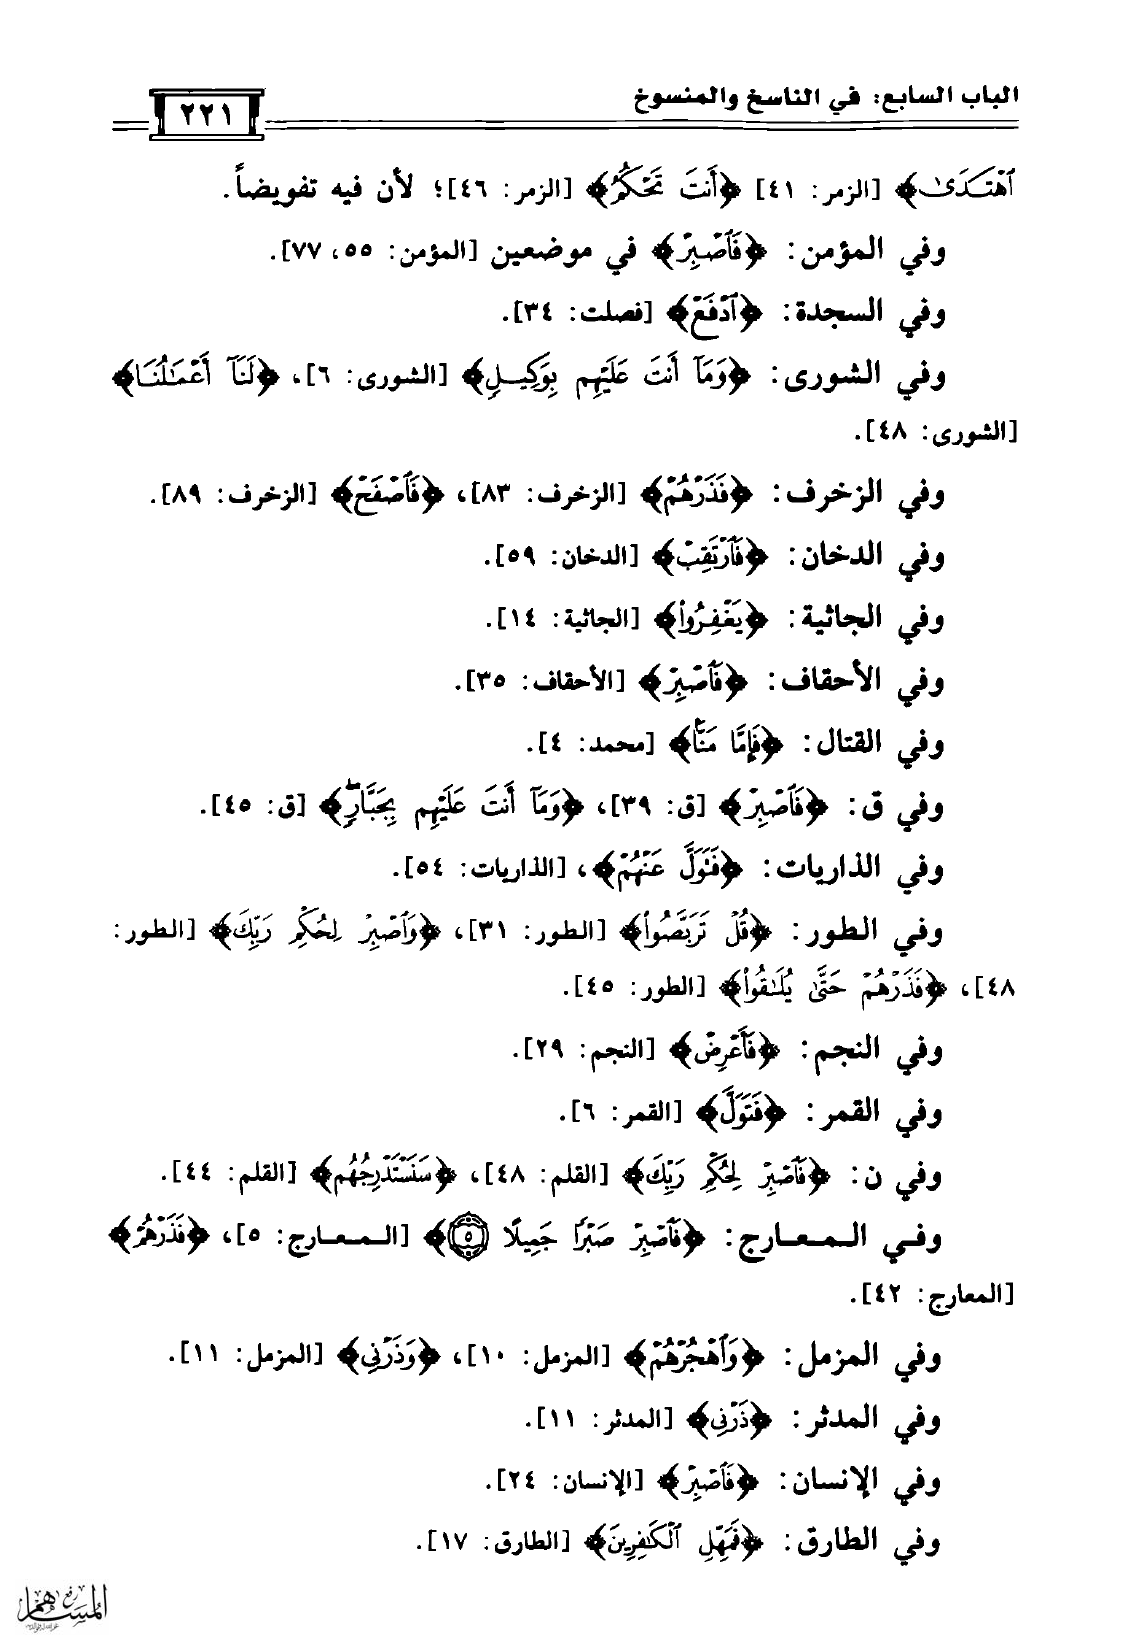 الباب السابع: في الناسخ والمنسوخ
٢٢١
ٱهْتَدَىٰ﴾ [الزمر: ٤١] ﴿أَنتَ تَحْكُمُ﴾ [الزمر: ٤٦]؛ لأن فيه تفويضاً.
وفي المؤمن: ﴿فَٱصْبِرْ﴾ في موضعين [المؤمن: ٥٥، ٧٧].
وفي السجدة: ﴿ٱدْفَعْ﴾ [فصلت: ٣٤].
وفي الشورى: ﴿وَمَآ أَنتَ عَلَيْهِم بِوَكِيلٍ﴾ [الشورى: ٦]، ﴿لَنَآ أَعْمَـٰلُنَا﴾
[الشورى: ٤٨].
وفي الزخرف: ﴿فَذَرْهُمْ﴾ [الزخرف: ٨٣]، ﴿فَٱصْفَحْ﴾ [الزخرف: ٨٩].
وفي الدخان: ﴿فَٱرْتَقِبْ﴾ [الدخان: ٥٩].
وفي الجاثية: ﴿يَغْفِرُوا۟﴾ [الجاثية: ١٤].
وفي الأحقاف: ﴿فَٱصْبِرْ﴾ [الأحقاف: ٣٥].
وفي القتال: ﴿فَإِمَّا مَنًّۢا﴾ [محمد: ٤].
وفي ق: ﴿فَٱصْبِرْ﴾ [ق: ٣٩]، ﴿وَمَآ أَنتَ عَلَيْهِم بِجَبَّارٍۖ﴾ [ق: ٤٥].
وفي الذاريات: ﴿فَتَوَلَّ عَنْهُمْ﴾، [الذاريات: ٥٤].
وفي الطور: ﴿قُلْ تَرَبَّصُوا۟﴾ [الطور: ٣١]، ﴿وَٱصْبِرْ لِحُكْمِ رَبِّكَ﴾ [الطور:
٤٨]، ﴿فَذَرْهُمْ حَتَّىٰ يُلَـٰقُوا۟﴾ [الطور: ٤٥].
وفي النجم: ﴿فَأَعْرِضْ﴾ [النجم: ٢٩].
وفي القمر: ﴿فَتَوَلَّ﴾ [القمر: ٦].
وفي ن: ﴿فَٱصْبِرْ لِحُكْمِ رَبِّكَ﴾ [القلم: ٤٨]، ﴿سَنَسْتَدْرِجُهُم﴾ [القلم: ٤٤].
وفـي الـمـعـارج: ﴿فَٱصْبِرْ صَبْرًا جَمِيلًا ٥﴾ [الـمـعـارج: ٥]، ﴿فَذَرْهُمْ﴾
[المعارج: ٤٢].
وفي المزمل: ﴿وَٱهْجُرْهُمْ﴾ [المزمل: ١٠]، ﴿وَذَرْنِى﴾ [المزمل: ١١].
وفي المدثر: ﴿ذَرْنِى﴾ [المدثر: ١١].
وفي الإنسان: ﴿فَٱصْبِرْ﴾ [الإنسان: ٢٤].
وفي الطارق: ﴿فَمَهِّلِ ٱلْكَـٰفِرِينَ﴾ [الطارق: ١٧].